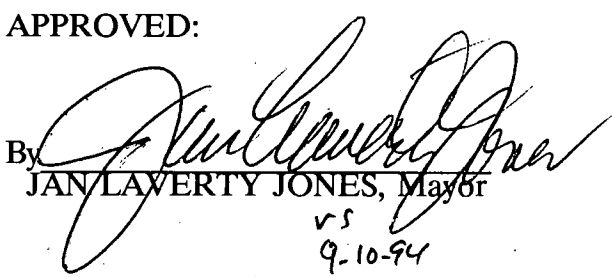 APPROVED:
By Jan Laverty Jones
JAN LAVERTY JONES, Mayor
vs
9-10-94